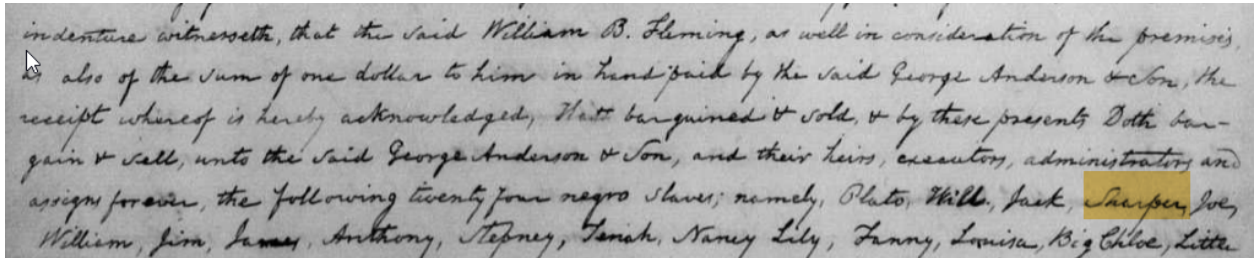 indenture witnesseth, that the said William B. Fleming, as well in consideration of the premises,
as also of the sum of one dollar to him in hand paid by the said George Anderson & Son, the
receipt whereof is hereby acknowledged, Hath bargained & sold, & by these presents Doth bar-
gain & sell, unto the said George Anderson & Son, and their heirs, executors, administrators and
assigns forever, the following twenty four negro slaves; namely, Plato, Will, Jack, Sharper, Joe,
William, Jim, James, Anthony, Stepney, Tenah, Nancy Lily, Fanny, Louisa, Big Chloe, Little